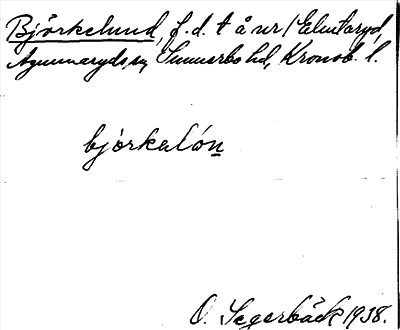 Björkelund, f.d. t å nr 1 Elmtaryd,
Agunnaryds sn, Sunnerbo hd, Kronob. l.
björkalón
O. Segerbäck 1938.